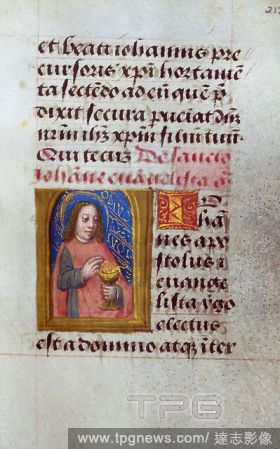 217
et beati iohannis pre
cursoris xpi hortame
ta sectedo ad eu quem p
dixit secura pueniat dnm
nrm ihm xpm filium tuum.
Qui tecum De sancto
iohanne euangelista an
Iohan
nes apo
stolus i
euange
lista vgo
electus
est a domino atque inter
TPG
www.tpgnews.com/達志影像